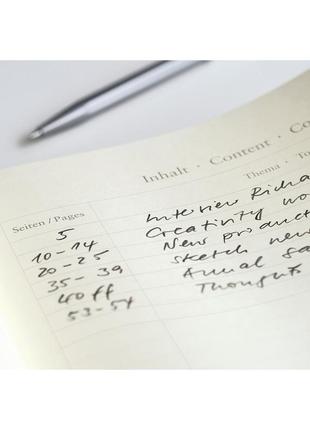 Inhalt · Content · Co
Seiten / Pages Thema · To
5 Interview Richa
10-14 Creativity wo
20-25 New product
35-39 Sketch new
40ff Annual Sa
53-54 Thoughts